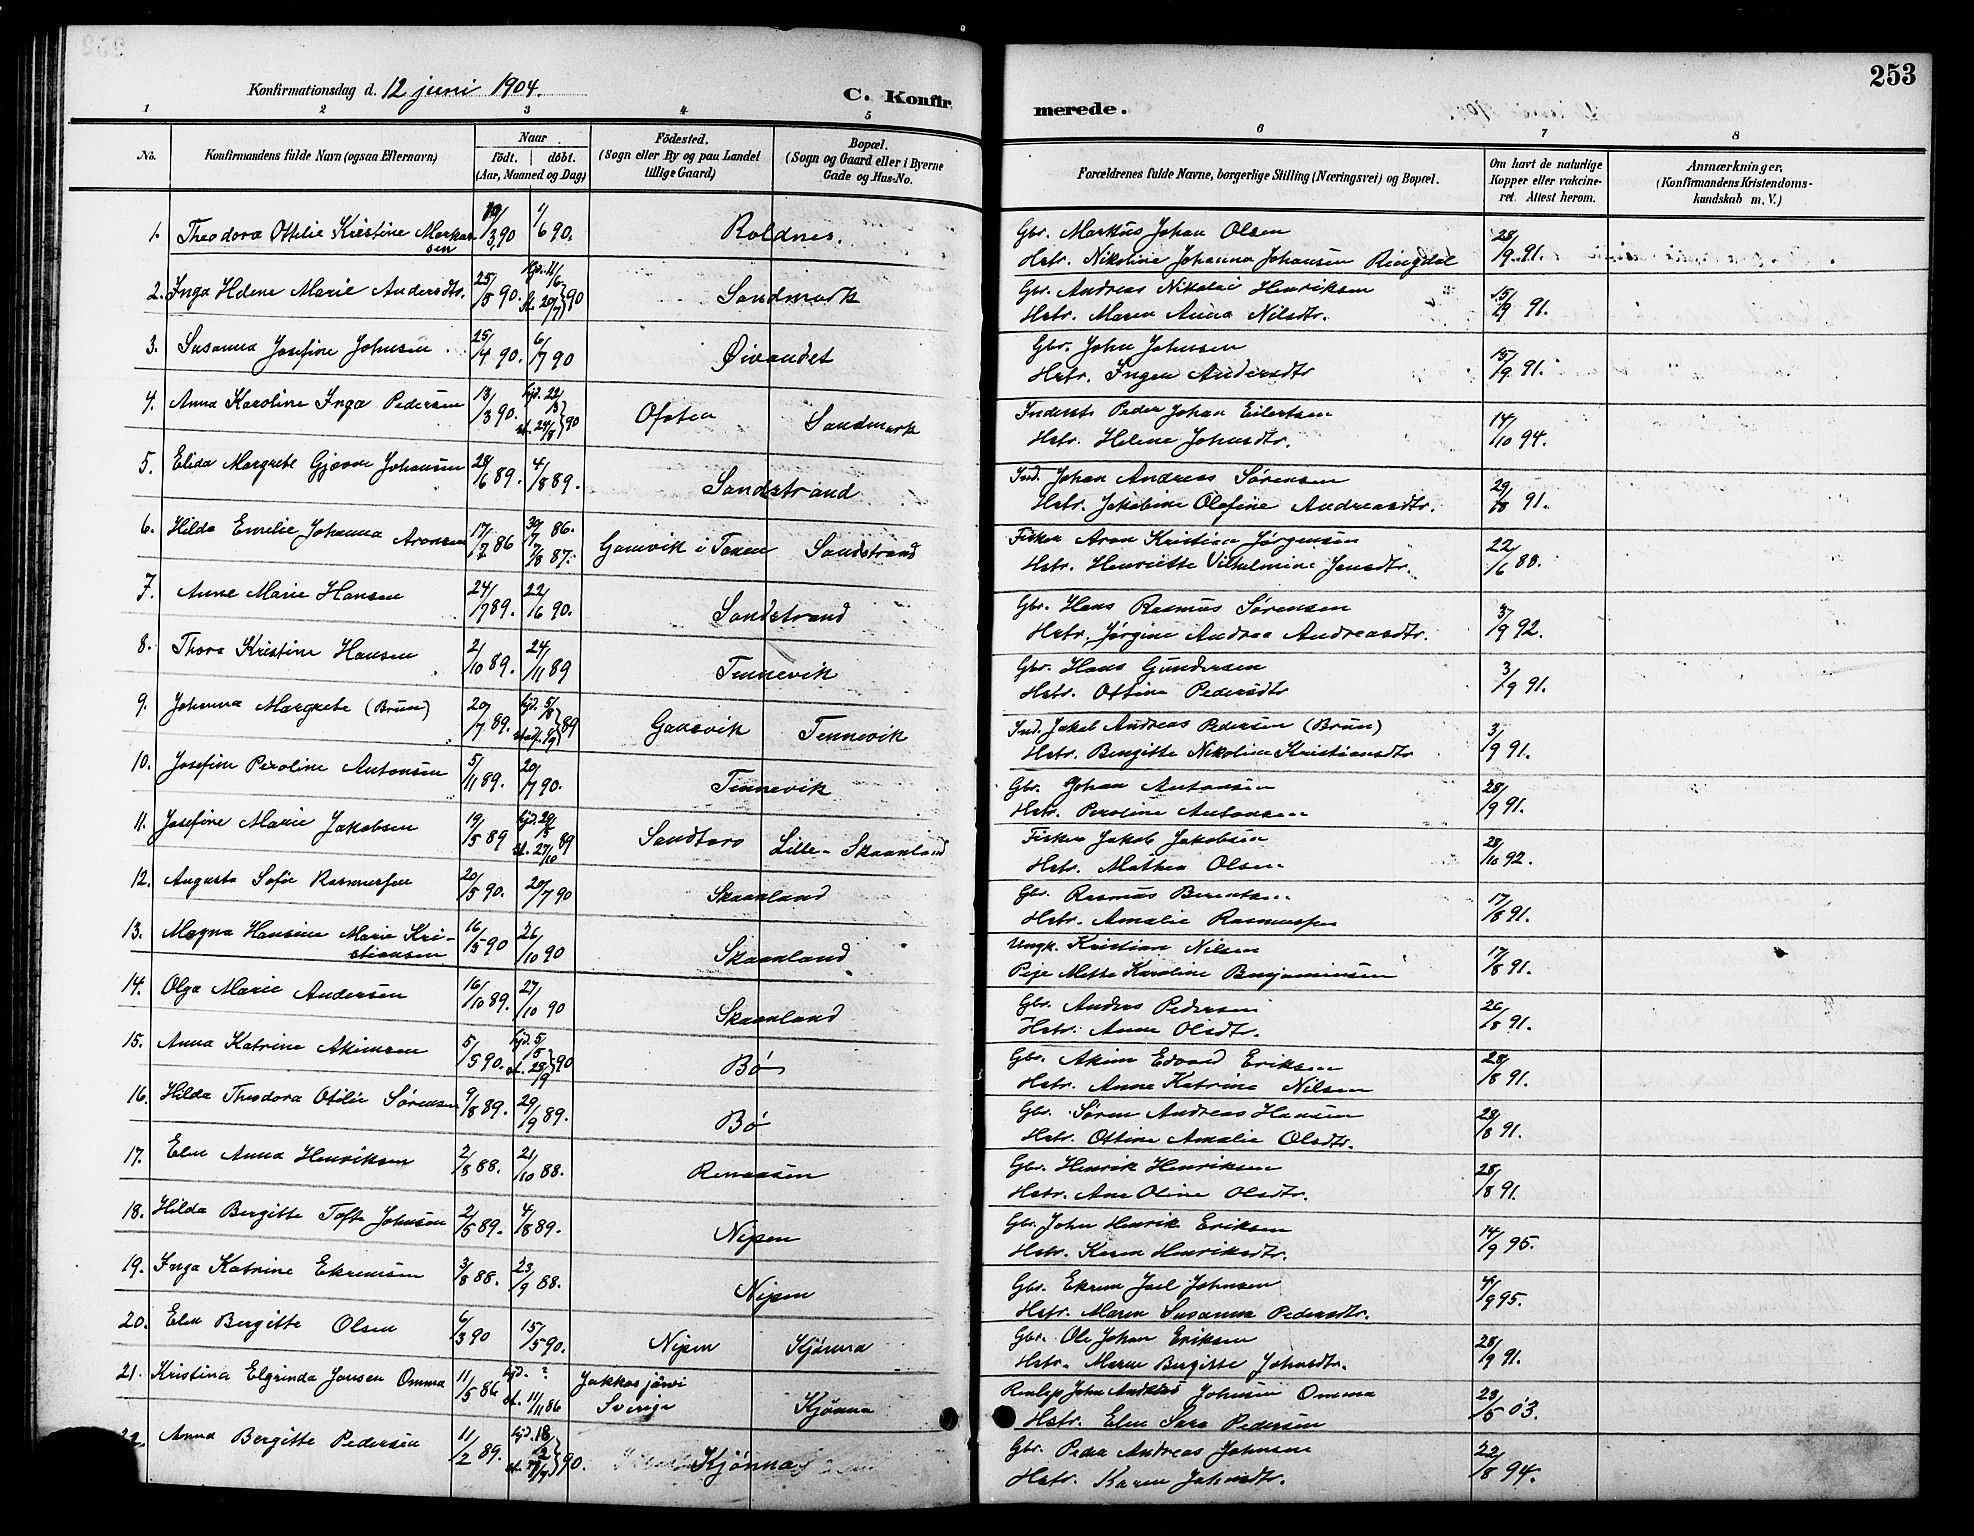 Konfirmationsdag d. 12 juni 1904.
C. Konfir
merede.
253
1 2 3 4 5 6 7 8
No.
Konfirmandens fulde Navn (ogsaa Efternavn)
Naar
Födt. döbt.
(Aar, Maaned og Dag)
Födested.
(Sogn eller By og paa Landet
tillige Gaard)
Bopæl.
(Sogn og Gaard eller i Byerne
Gade og Hus-No.
Forældrenes fulde Navne, borgerlige Stilling (Næringsvei) og Bopæl.
Om havt de naturlige
Kopper eller vakcine-
ret. Attest herom.
Anmærkninger,
(Konfirmandens Kristendoms-
kundskab m. V.)
1. Theodora Ottilie Kristine Markus-
sen 19/3 90 1/6 90. Roldnes. Gbr. Markus Johan Olsen
Hstr. Nikoline Johanna Johansen Ringdal 28/9 91.
2. Inga Helene Marie Andersdtr. 25/5 90. hjd. 11/6 st. 20/7 } 90 Sandmark Gbr. Andreas Nikolai Henriksen
Hstr. Maren Anna Nilsdtr. 15/9 91.
3. Susanna Josefine Johnsen 25/4 90. 6/7 90 Øivandet Gbr. John Johnsen
Hstr. Inger Andersdtr 15/9 91.
4. Anna Karoline Inga Pedersen 13/3 90. hjd. 22/3 st. 24/8 } 90 Ofoten Sandmark Inderst Peder Johan Eilertsen
Hstr. Helene Johnsdtr. 14/10 94.
5. Elida Margrete Gjøver Johansen 28/6 89. 4/8 89. Sandstrand Ind. Johan Andreas Sørensen
Hstr. Jakobine Olefine Andreasdtr. 29/8 91.
6. Hilda Emelie Johanna Aronsen 17/7 86 30/7 86. 7/8 87. Gamvik i Tanen Sandstrand Fisker Aron Kristian Jørgensen
Hstr. Henriette Vilhelmine Jensdtr. 22/6 88.
7. Anne Marie Hansen 24/7 89. 22/6 90. Sandstrand Gbr. Hans Rasmus Sørensen
Hstr. Jørgine Andrea Andreasdtr. 3/9 92.
8. Thora Kristine Hansen 2/10 89. 24/11 89 Tennevik Gbr. Hans Gundersen
Hstr. Ottine Pedersdtr 3/9 91.
9. Johanna Margrete (Brun) 20/7 89. hjd. 5/8 stadf. 1/9 } 89 Gausvik Tennevik Ind. Jakob Andreas Pedersen (Brun)
Hstr. Bergitte Nikoline Kristiansdtr 3/9 91.
10. Josefine Peroline Antonsen 5/11 89. 20/7 90. Tennevik Gbr. Johan Antonsen
Hstr. Peroline Antonsen 28/9 91.
11. Josefine Marie Jakobsen 19/5 89 hjd. 29/5 st. 27/10 89 Sandtorv Lille-Skaanland Fisker Jakob Jakobsen
Hstr. Mathea Olsen 28/10 92.
12. Augusta Sofie Rasmussen 20/5 90. 20/7 90 Skaanland Gbr. Rasmus Berentsen
Hstr. Amalie Rasmussen 17/8 91.
13. Magna Hansine Marie Kri-
stiansen 16/5 90 26/10 90 Skaanland Ungk. Kristian Nilsen
Pige Mette Karoline Benjaminsen 17/8 91.
14. Olga Marie Andersen 16/10 89. 27/10 90 Skaanland Gbr. Anders Pedersen
Hstr. Anne Olsdtr. 26/8 91.
15. Anna Katrine Akimsen 5/5 90. hjd. 5/5 st. 28/9 } 90 Bö Gbr. Akim Edvard Eriksen
Hstr. Anne Katrine Nilsen 28/8 91.
16. Hilda Theodora Otilie Sørensen 9/8 89. 29/9 89. Bö Gbr. Søren Andreas Hansen
Hstr. Ottine Amalie Olsdtr. 28/8 91.
17. Elen Anna Henriksen 2/8 88. 21/10 88. Renaasen Gbr. Henrik Henriksen
Hstr. Ane Oline Olsdtr. 28/8 91.
18. Hilda Bergitte Tofte Johnsen 2/5 89. 4/8 89. Nipen Gbr. John Henrik Eriksen
Hstr. Karen Henriksdtr. 14/9 95.
19. Inga Katrine Ekremsen 3/8 88. 23/9 88. Nipen Gbr. Ekrem Joel Johnsen
Hstr. Maren Susanna Pedersdtr. 4/9 95.
20. Elen Bergitte Olsen 6/3 90 15/5 90. Nipen Kjønna Gbr. Ole Johan Eriksen
Hstr. Maren Bergitte Johnsdtr. 28/9 91.
21. Kristina Elgrinda Jonsen Omma 11/5 86 hjd. ? st. 11/11 86 Jukkasjärvi
Sverige Kjønna Renlap John Andreas Johnsen Omma
Hstr. Elen Sara Pedersen 28/5 03.
22. Anna Bergitte Pedersen 11/2 89. hjd. 18/2 st. 7/7 } 90. Kjønna Gbr. Peder Andreas Johnsen
Hstr. Karen Johnsdtr. 22/8 94.